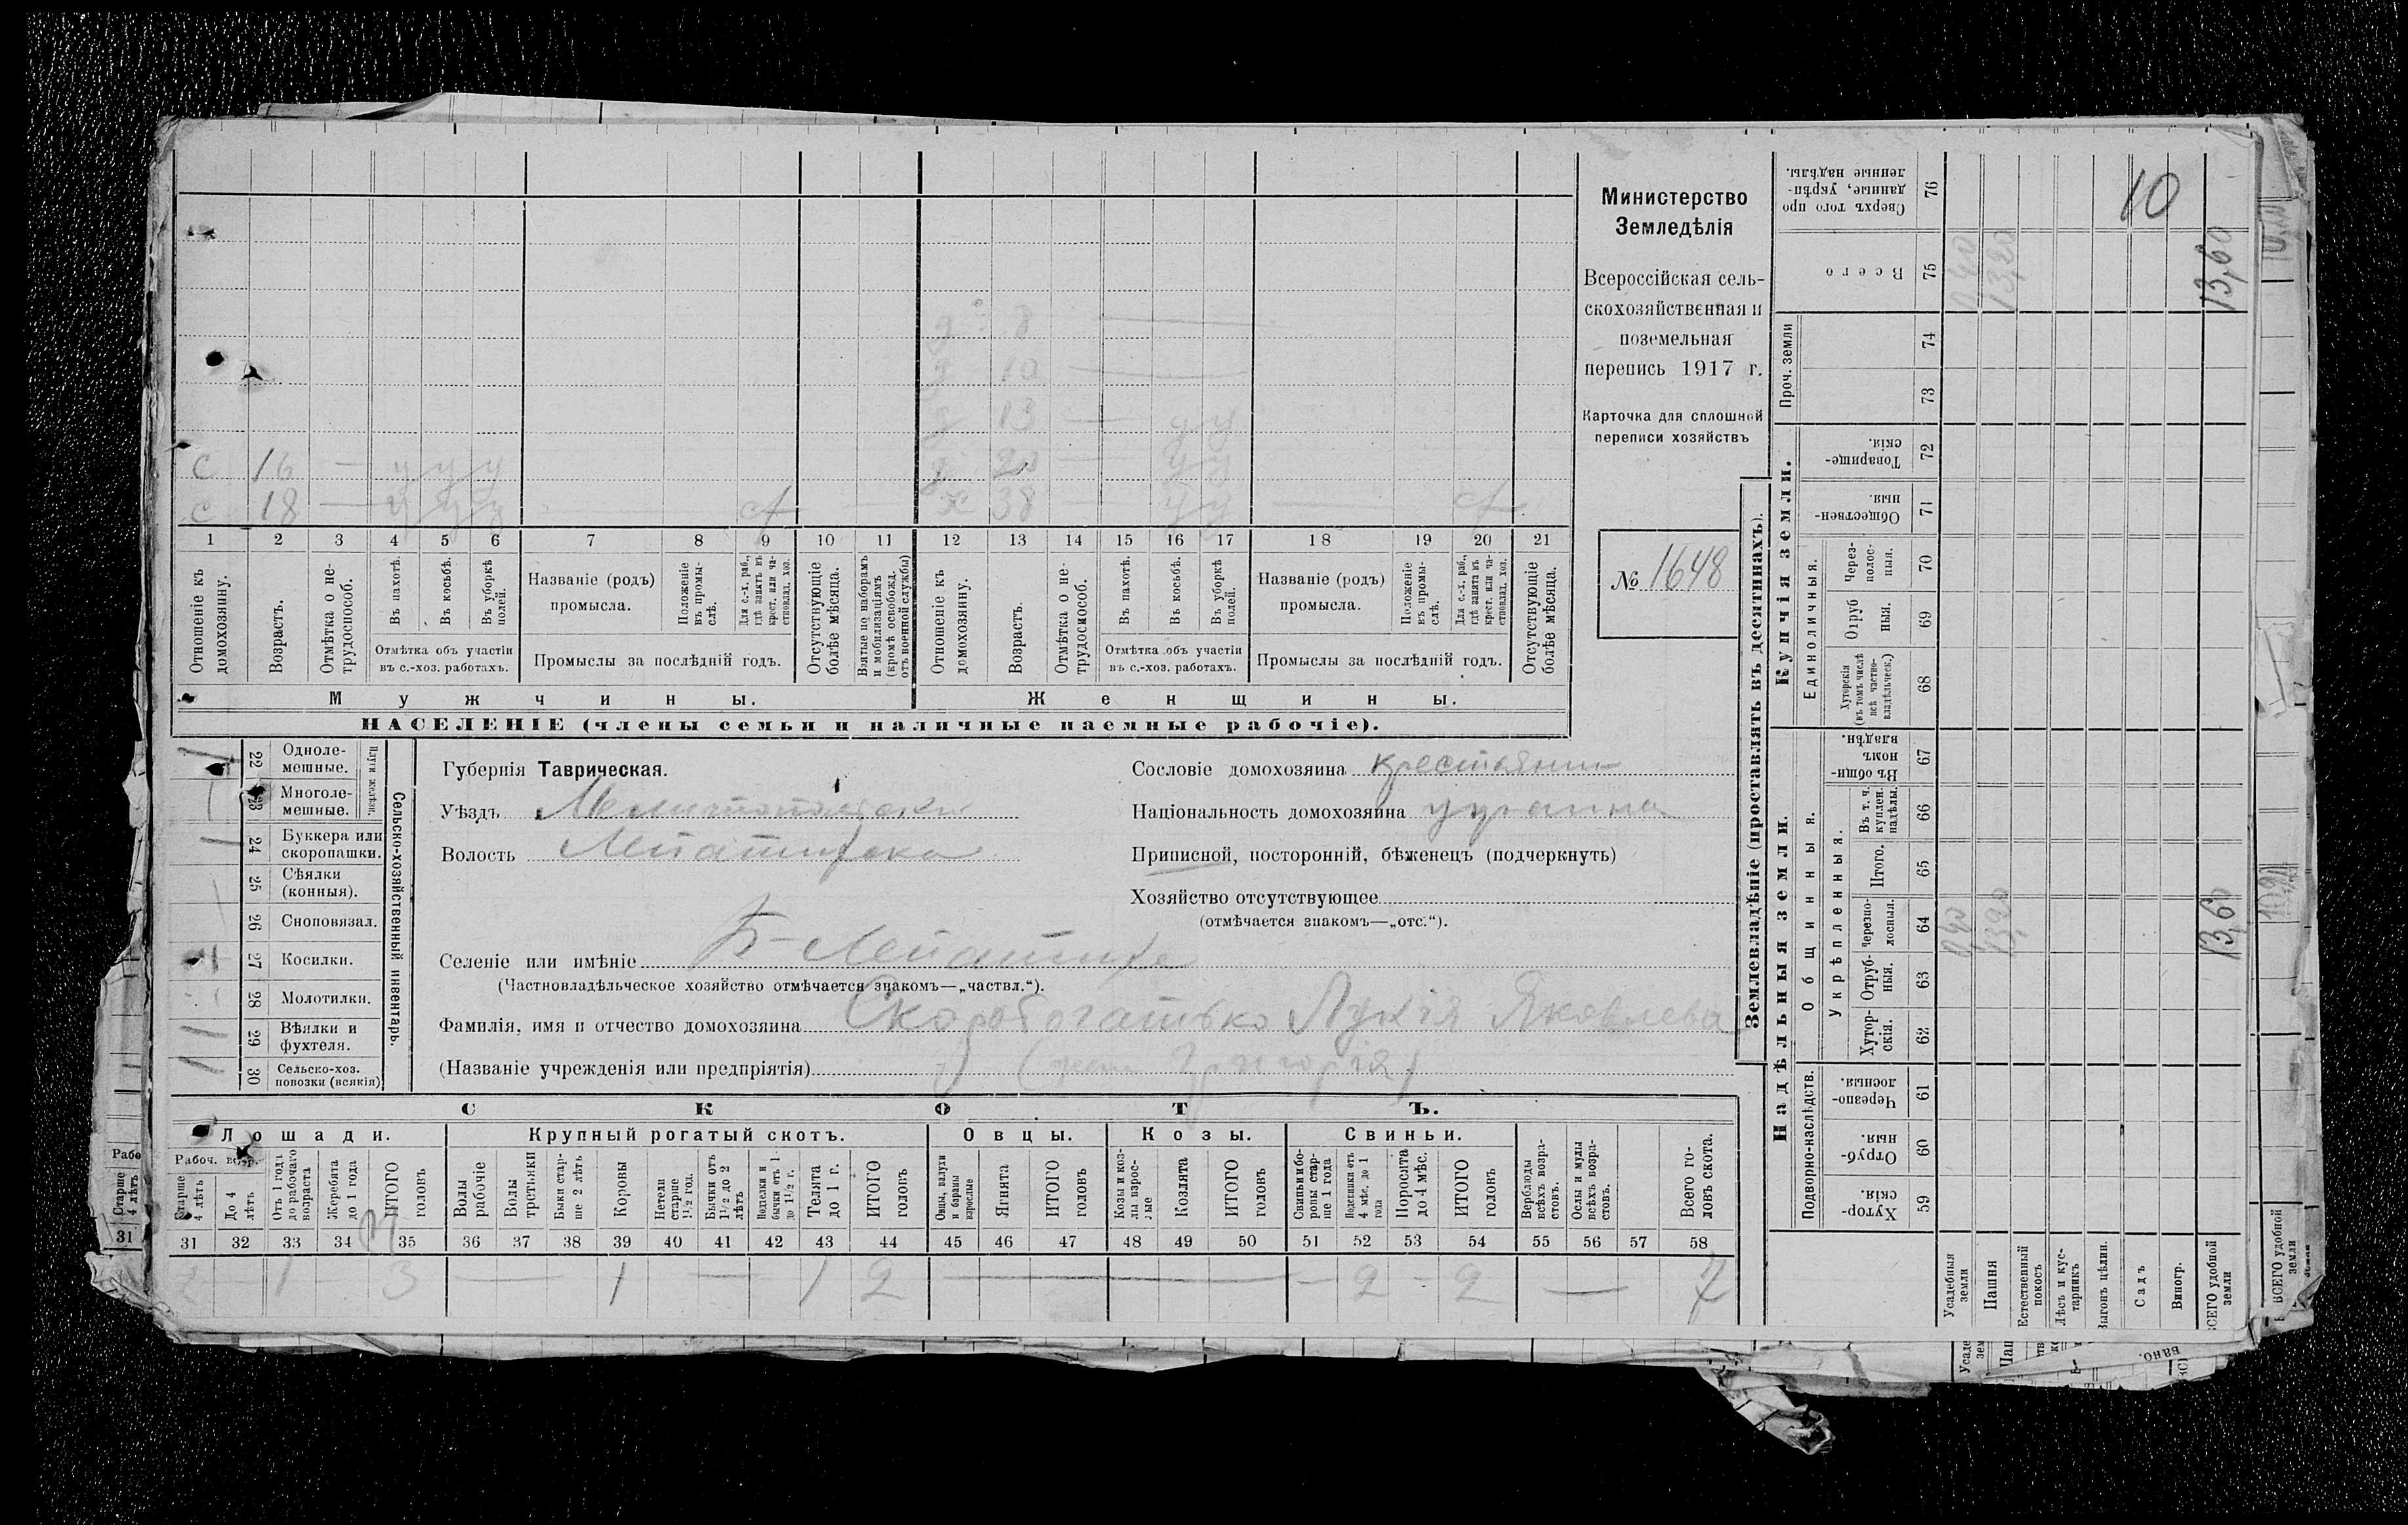 Министерство
Земледѣлія
Всероссійская сель-
скохозяйственная и
поземельная
перепись 1917 г.
Карточка для сплошной
переписи хозяйствъ
№ 1648
10
д 8 —
д 10 — —
д 13 — у у
С 16 — у у у
д 20 — у у
с 18 — у у у
ж 38 — у у —
1 2 3 4 5 6 7 8 9 10 11 12 13 14 15 16 17 18 19 20 21
Отношеніе къ домохозяину.
Возрастъ.
Отмѣтка о не-трудоспособ.
Въ пахотѣ.
Въ косьбѣ.
Въ уборкѣ полей.
Отмѣтка объ участіи
въ с.-хоз. работахъ.
Названіе (родъ)
промысла.
Положеніе въ промы-слѣ.
Для с.-х. раб., гдѣ занятъ въ крест. или ча-стновлад. хоз.
Промыслы за послѣдній годъ.
Отсутствующіе болѣе мѣсяца.
Взятые по наборамъ и мобилизаціямъ (кромѣ освобожд. отъ военной службы)
Отношеніе къ домохозяину.
Возрастъ.
Отмѣтка о не-трудоспособ.
Въ пахотѣ.
Въ косьбѣ.
Въ уборкѣ полей.
Отмѣтка объ участіи
въ с.-хоз. работахъ.
Названіе (родъ)
промысла.
Положеніе въ промы-слѣ.
Для с.-х. раб., гдѣ занята въ крест. или ча-стновлад. хоз.
Промыслы за послѣдній годъ.
Отсутствующіе болѣе мѣсяца.
Мужчины. Женщины.
НАСЕЛЕНІЕ (члены семьи и наличные наемные рабочіе).
22 Одноле-мешные.
23 Многоле-мешные.
Плуги желѣзн.
24 Буккера или скоропашки.
25 Сѣялки (конныя).
26 Сноповязал.
27 Косилки.
28 Молотилки.
29 Вѣялки и фухтеля.
30 Сельско-хоз. повозки (всякія)
Сельско-хозяйственный инвентарь.
Губернія Таврическая.
Уѣздъ Мелитопольски
Волость Лепатихска
Селеніе или имѣніе Б-Лепатиха
(Частновладѣльческое хозяйство отмѣчается знакомъ—„частвл.“).
Фамилія, имя и отчество домохозяина Скоробогатько Лукія Яковлева
(Названіе учрежденія или предпріятія) Григорія)
Сословіе домохозяина крестьянин
Національность домохозяина украина
Приписной, посторонній, бѣженецъ (подчеркнуть)
Хозяйство отсутствующее
(отмѣчается знакомъ—„отс.“).
СКОТЪ.
Лошади. Крупный рогатый скотъ. Овцы. Козы. Свиньи.
Рабоч. возр.
Старше 4 лѣтъ
До 4 лѣтъ
Отъ 1 года до рабочаго возраста
Жеребята до 1 года
ИТОГО головъ
Волы рабочіе
Волы третьяки
Быки стар-ше 2 лѣтъ
Коровы
Нетели старше 1½ год.
Бычки отъ 1½ до 2 лѣтъ
Подтелки и бычки отъ 1 до 1½ г.
Телята до 1 г.
ИТОГО головъ
Овцы, валухи и бараны взрослые
Ягнята
ИТОГО головъ
Козы и коз-лы взрос-лые
Козлята
ИТОГО головъ
Свиньи и бо-ровы стар-ше 1 года
Подсвинки отъ 4 мѣс. до 1 года
Поросята до 4 мѣс.
ИТОГО головъ
Верблюды всѣхъ возра-стовъ.
Ослы и мулы всѣхъ возра-стовъ.
Всего го-ловъ скота.
31 32 33 34 35 36 37 38 39 40 41 42 43 44 45 46 47 48 49 50 51 52 53 54 55 56 57 58
2 1 — 3 — 1 — 1 2 — — 2 - 2 — 7
Землевладѣніе (проставлять въ десятинахъ).
Надѣльныя земли. Купчія земли. Проч. земли
Подворно-наслѣдств. Общинныя. Единоличныя.
Укрѣпленныя.
Хутор-скія. 59
Отруб-ныя 60
Черезпо-лосныя. 61
Хутор-скія. 62
Отруб-ныя. 63
Черезпо-лосныя. 64
Итого. 65
Въ т. ч. куплен. надѣлы. 66
Въ общин-номъ владѣн. 67
Хуторскія (въ томъ числѣ всѣ частно-владѣльческ.) 68
Отруб ныя. 69
Через-полос-ныя. 70
Обществен-ныя. 71
Товарище-скія. 72
73
74
Всего 75
Сверхъ того про данные, укрѣп-ленные надѣлы. 76
Усадебныя земли 0,40 0,40
Пашня 13,20 13,20
Естественный покосъ
Лѣсъ и кус-тарникъ
Выгонъ цѣлин.
Садъ
Виногр.
ВСЕГО удобной земли 13,60 13,60
ВСЕГО удобной земли
Рабо
Старше 4 лѣтъ
31
вано.